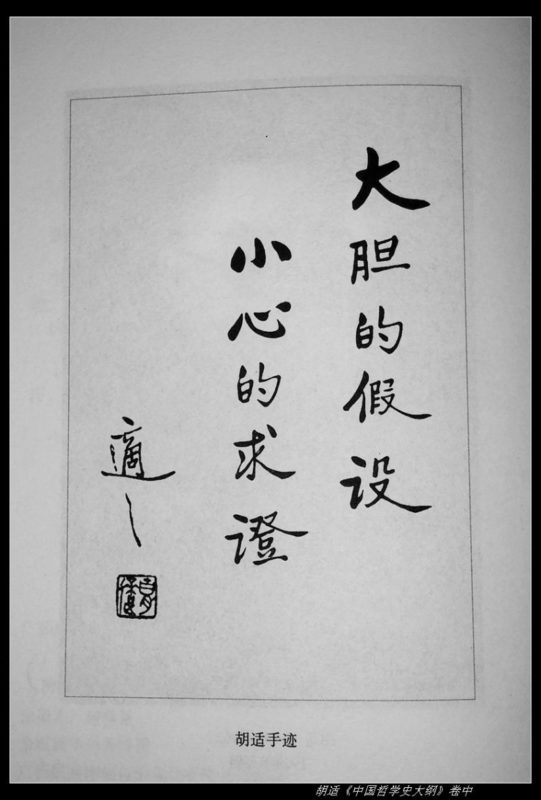 大胆的假设
小心的求證
適之
胡适手迹
胡适《中国哲学史大纲》卷中